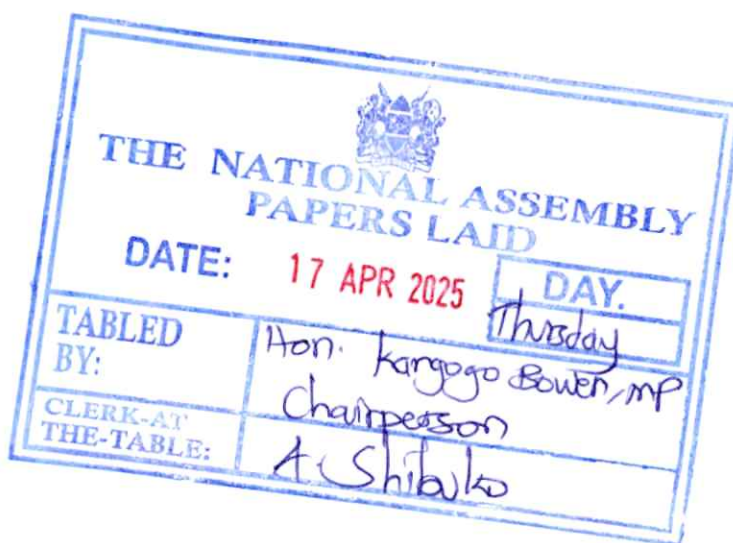 THE NATIONAL ASSEMBLY
PAPERS LAID
DATE: 17 APR 2025
DAY.
Thursday
TABLED
BY:
Hon. Kangogo Bowen, MP
Chairperson
CLERK-AT
THE-TABLE:
A. Shibuko